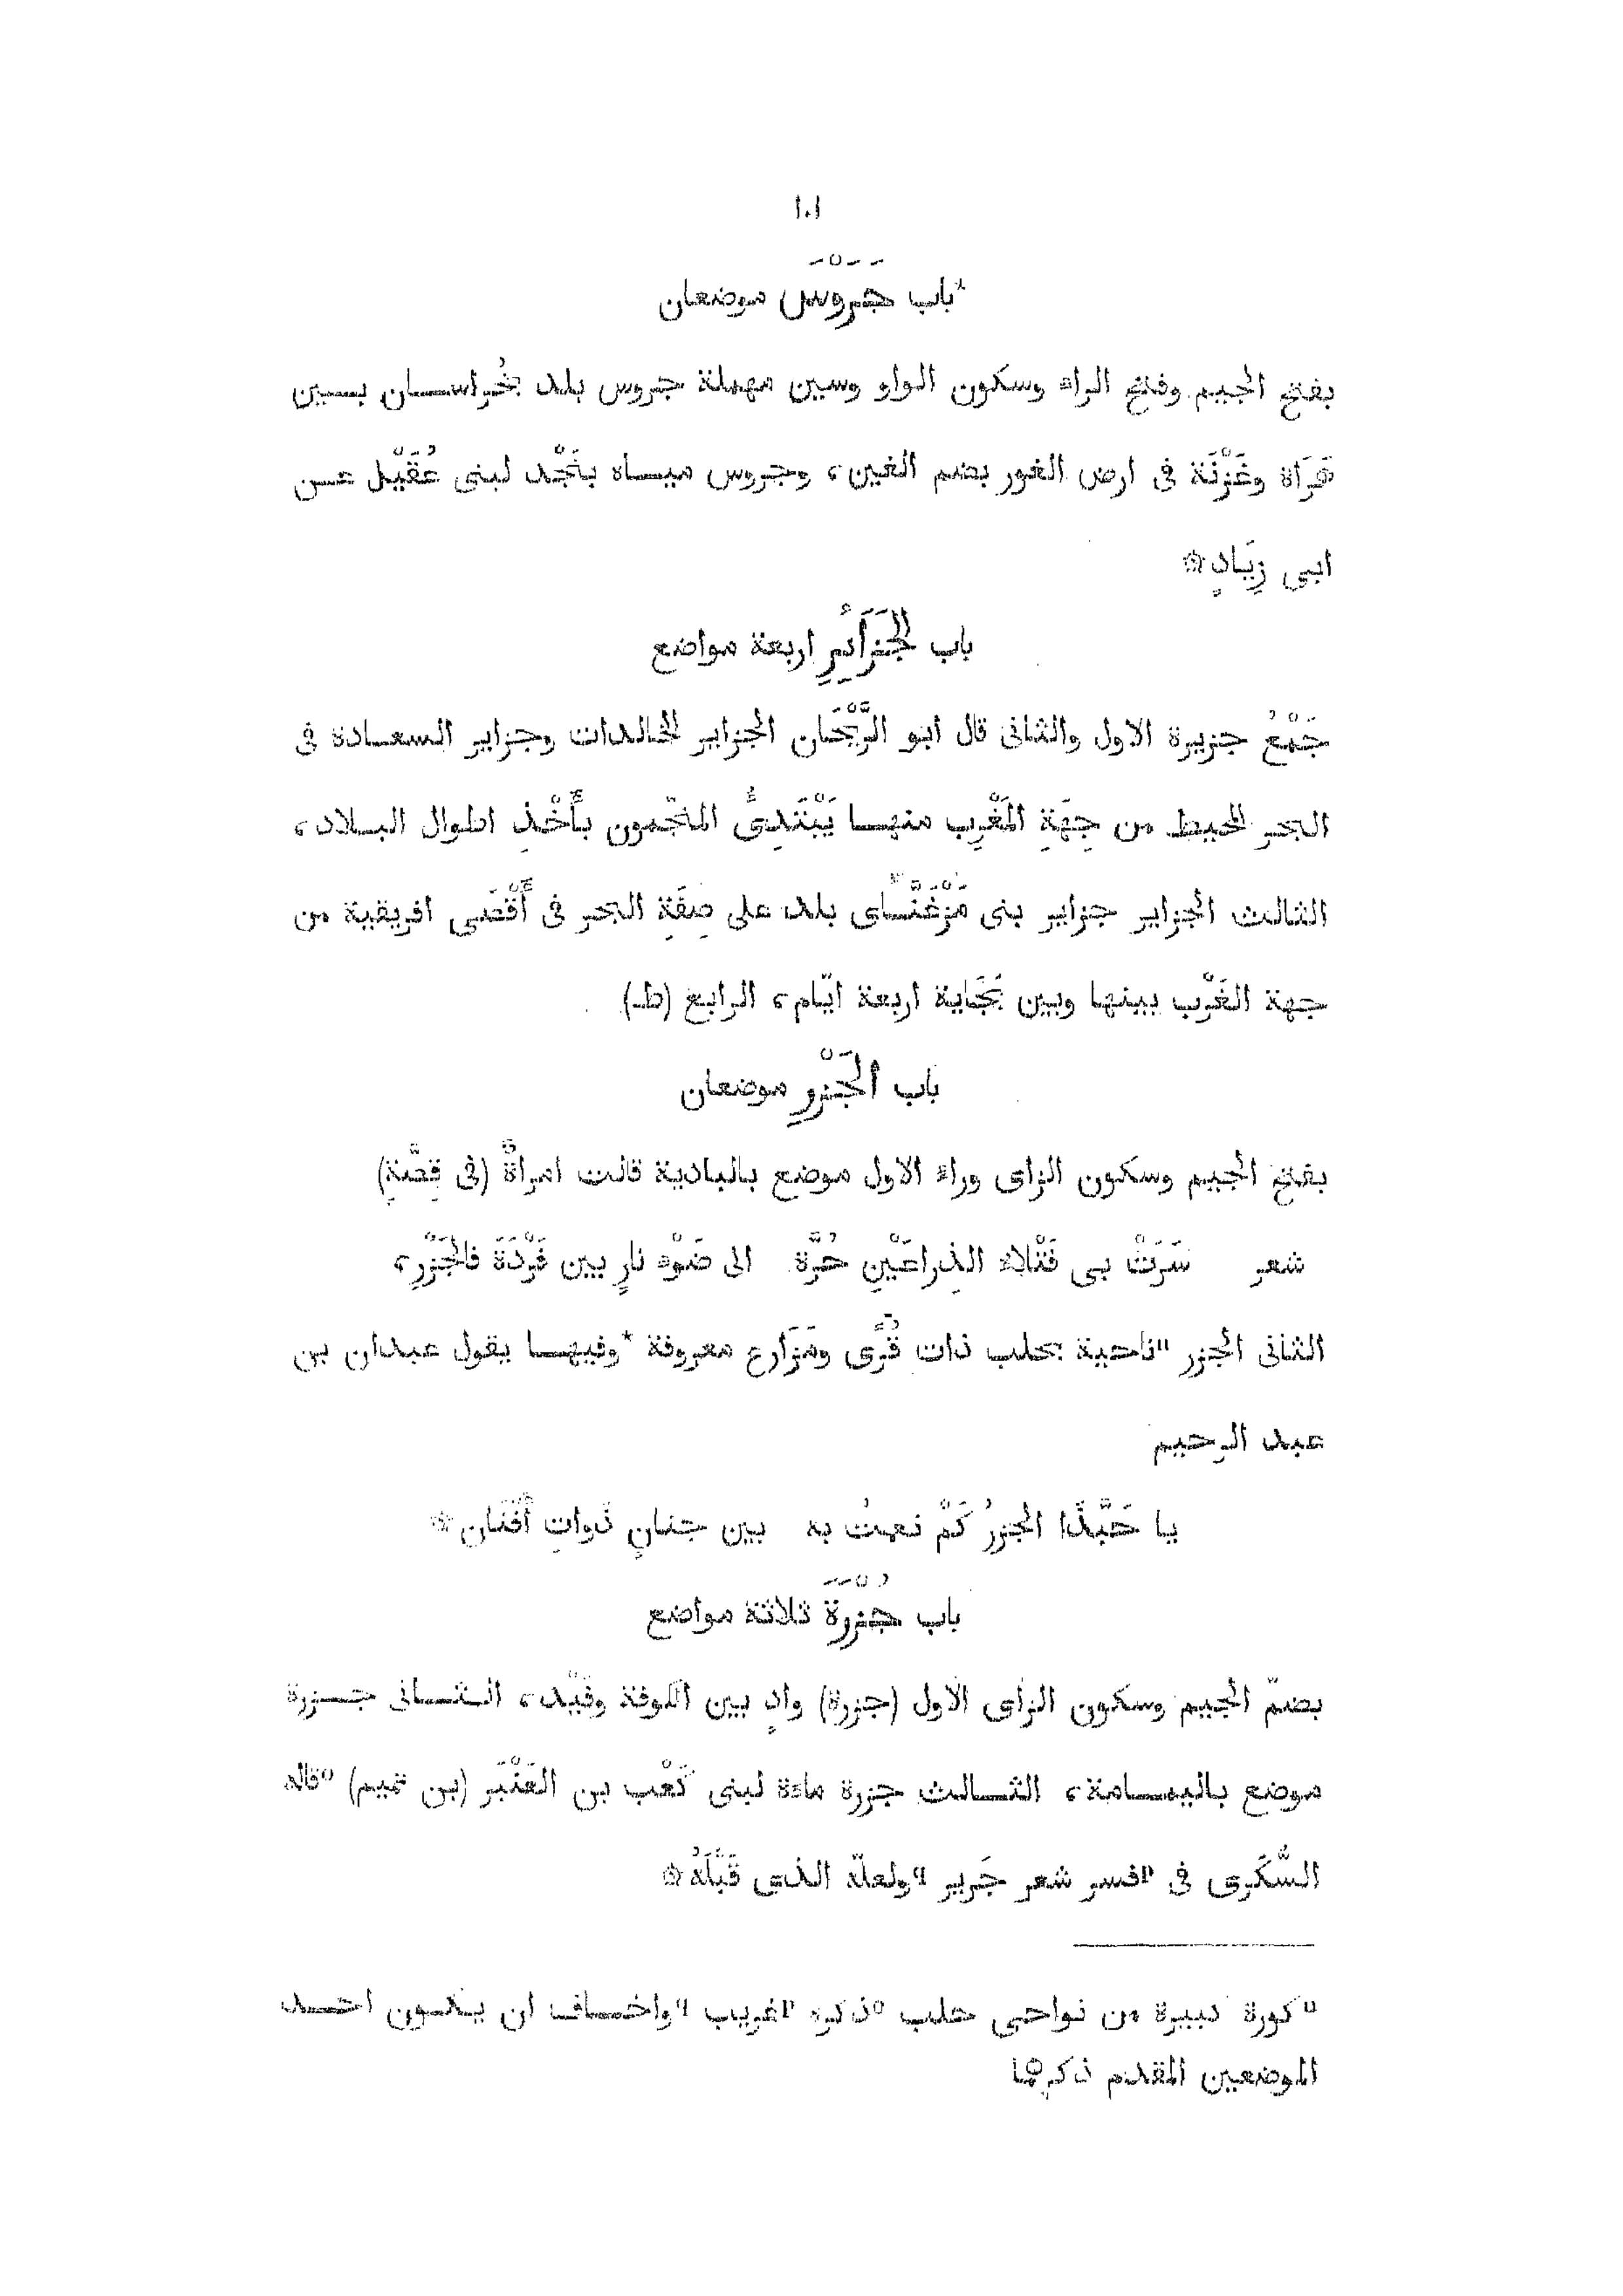 ١٠١
*باب جَرَوْسَ موضعان
بفتح الجيم وفتح الراء وسكون الواو وسين مهملة جروس بلد بخُراسان بين
هَرَاة وغَزْنَة فى ارض الغور بضم الغين، وجروس مياه بنَجْد لبنى عُقَيْل عن
ابى زِيَادٍ ۞
باب الجَزَائِرِ اربعة مواضع
جَمْعُ جزيرة الاول والثانى قال ابو الرَّيْحَان الجزاير الخالدات وجزاير السعادة فى
البحر المحيط من جِهَةِ المَغْرِب منها يَبْتَدِىُٔ المنجّمون بأَخْذِ اطوال البلاد،
الثالث الجزاير جزاير بنى مَزْغَنَّاى بلد على ضِفَةِ البحر فى أَقْصَى افريقية من
جهة الغَرْب بينها وبين بَجَاية اربعة ايّام، الرابع (ط)
باب الجَزْرِ موضعان
بفتح الجيم وسكون الزاى وراء الاول موضع بالبادية قالت امراةٌ (فى قِصَّةٍ)
شعر سَرَتْ بى فَتْلاءُ الذِراعَيْنِ حُرَّة الى ضَوْء نارٍ بين فَرْدَةَ فالجَزْرِ،
الثانى الجزر "ناحية بحلب ذات قُرًى ومَزَارع معروفة *وفيها يقول عبدان بن
عبد الرحيم
يا حَبَّذَا الجزرُ كَمْ نعمتُ به بين جنانٍ ذَواتِ أَفْنَان ۞
باب جُزْرَةَ ثلاثة مواضع
بضمّ الجيم وسكون الزاى الاول (جزرة) وادٍ بين الكوفة وفَيْد، الثانى جزرة
موضع باليمامة، الثالث جزرة ماءة لبنى كَعْب بن العَنْبَر (بن تميم) °قاله
السُّكَرى فى "فسر شعر جَرير "ولعلّه الذى قَبْلَهُ ۞
"كورة كبيرة من نواحى حلب °ذكره "غريب "واخاف ان يكون احد
الموضعين المقدم ذكرهما